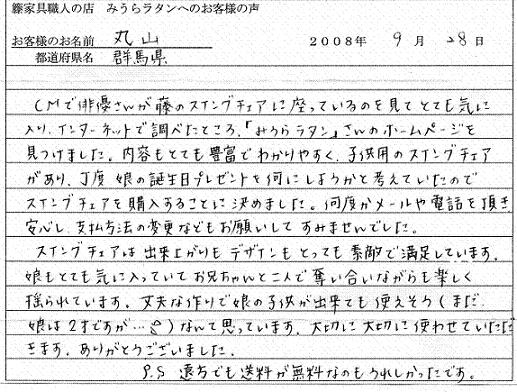 籐家具職人の店 みうらラタンへのお客様の声
お客様のお名前 丸山 2008年 9月28日
都道府県名 群馬県
CMで俳優さんが藤のスイングチェアに座っているのを見てとても気に
入り、インターネットで調べたところ、「みうらラタン」さんのホームページを
見つけました。内容もとても豊富でわかりやすく、子供用のスイングチェア
があり、丁度 娘の誕生日プレゼントを何にしようかと考えていたので
スイングチェアを購入することに決めました。何度かメールや電話を頂き
安心し、支払方法の変更などもお願いしてすみませんでした。
スイングチェアは出来上がりも デザインも とっても 素敵で満足しています。
娘もとても気に入っていてお兄ちゃんと二人で奪い合いながらも楽しく
揺られています。丈夫な作りで娘の子供が出来ても使えそう(まだ
娘は2才ですが…)なんて思っています。大切に大切に使わせていただ
きます。ありがとうございました。
P.S 遠方でも送料が無料なのもうれしかったです。